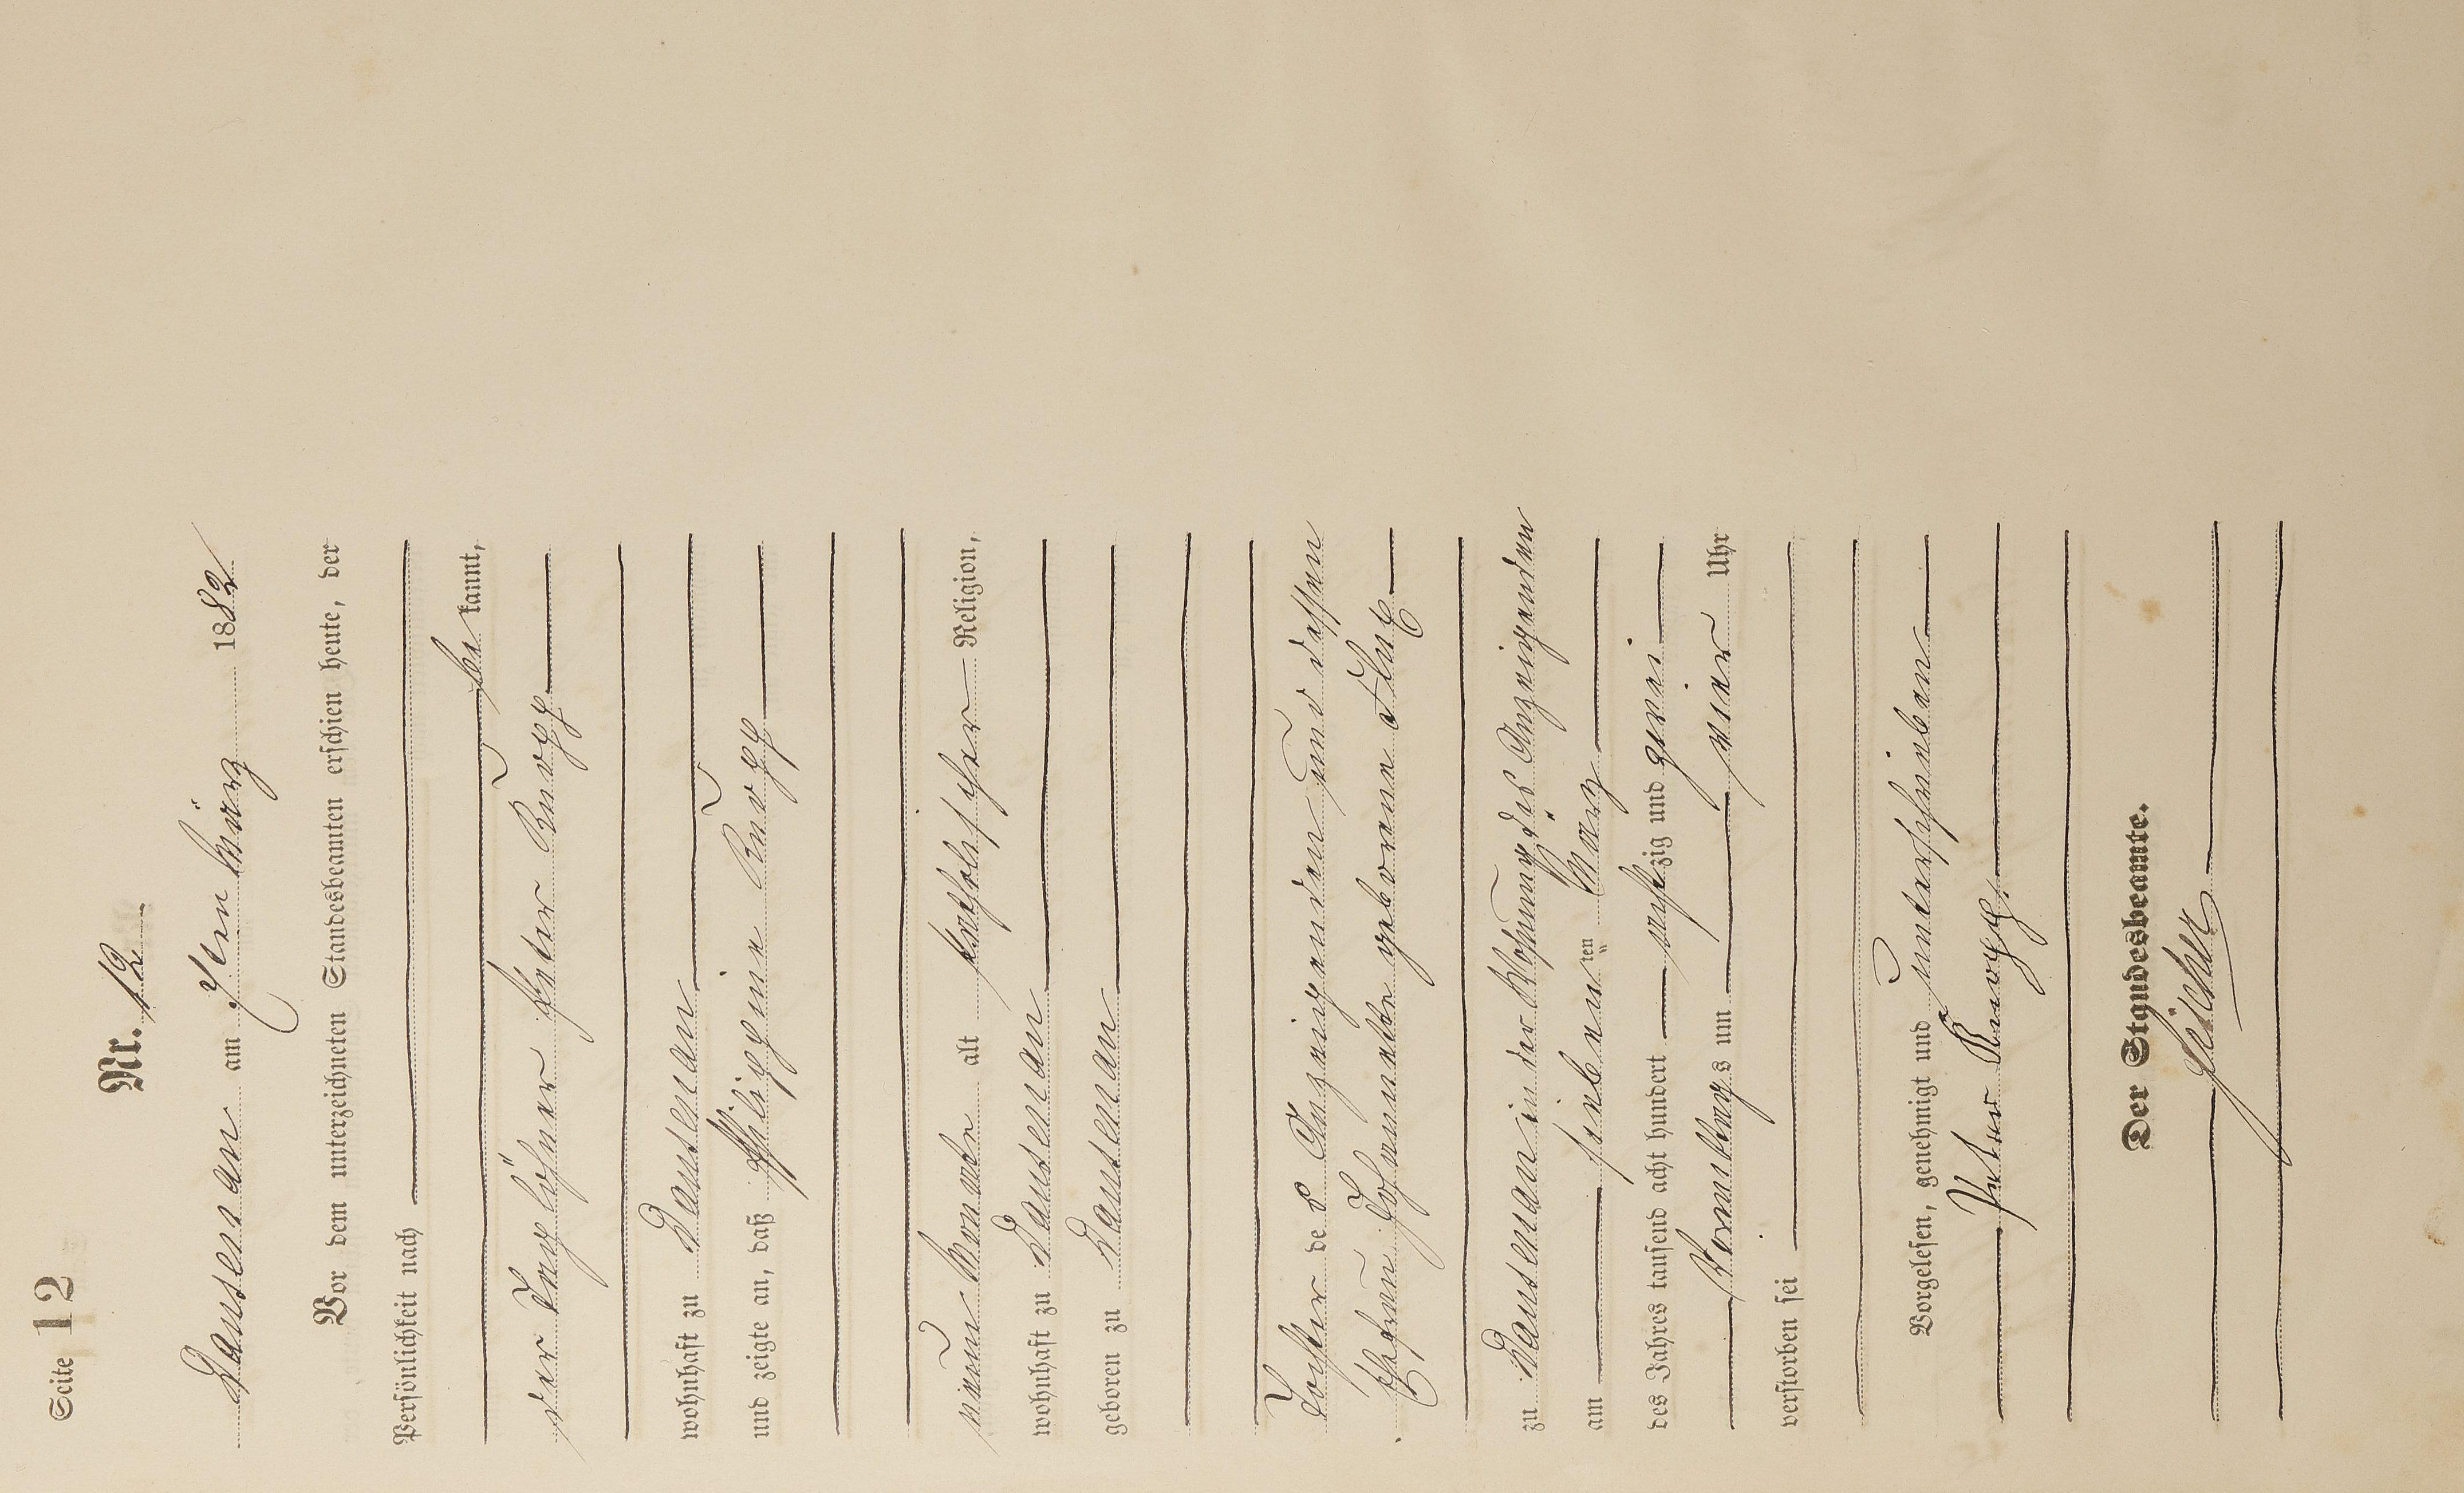 Seite 12
Nr. 12
Dausenau am 7ten März 1882
Vor dem unterzeichneten Standesbeamten erschien heute, der
Persönlichkeit nach
be kannt,
der Taglöhner Peter Knopp
wohnhaft zu Dausenau
und zeigte an, daß Philippine Knopp
neun Monate alt katholischer Religion,
wohnhaft zu Dausenau
geboren zu Dausenau
Tochter des Anzeigenden und dessen
Ehefrau geborene
zu Dausenau in der Wohnung des Anzeigenden
am siebenten März
des Jahres tausend acht hundert achtzig und zwei
Vormittags um vier Uhr
verstorben sei
Vorgelesen, genehmigt und unterschrieben
Peter Knopp.
Der Standesbeamte.